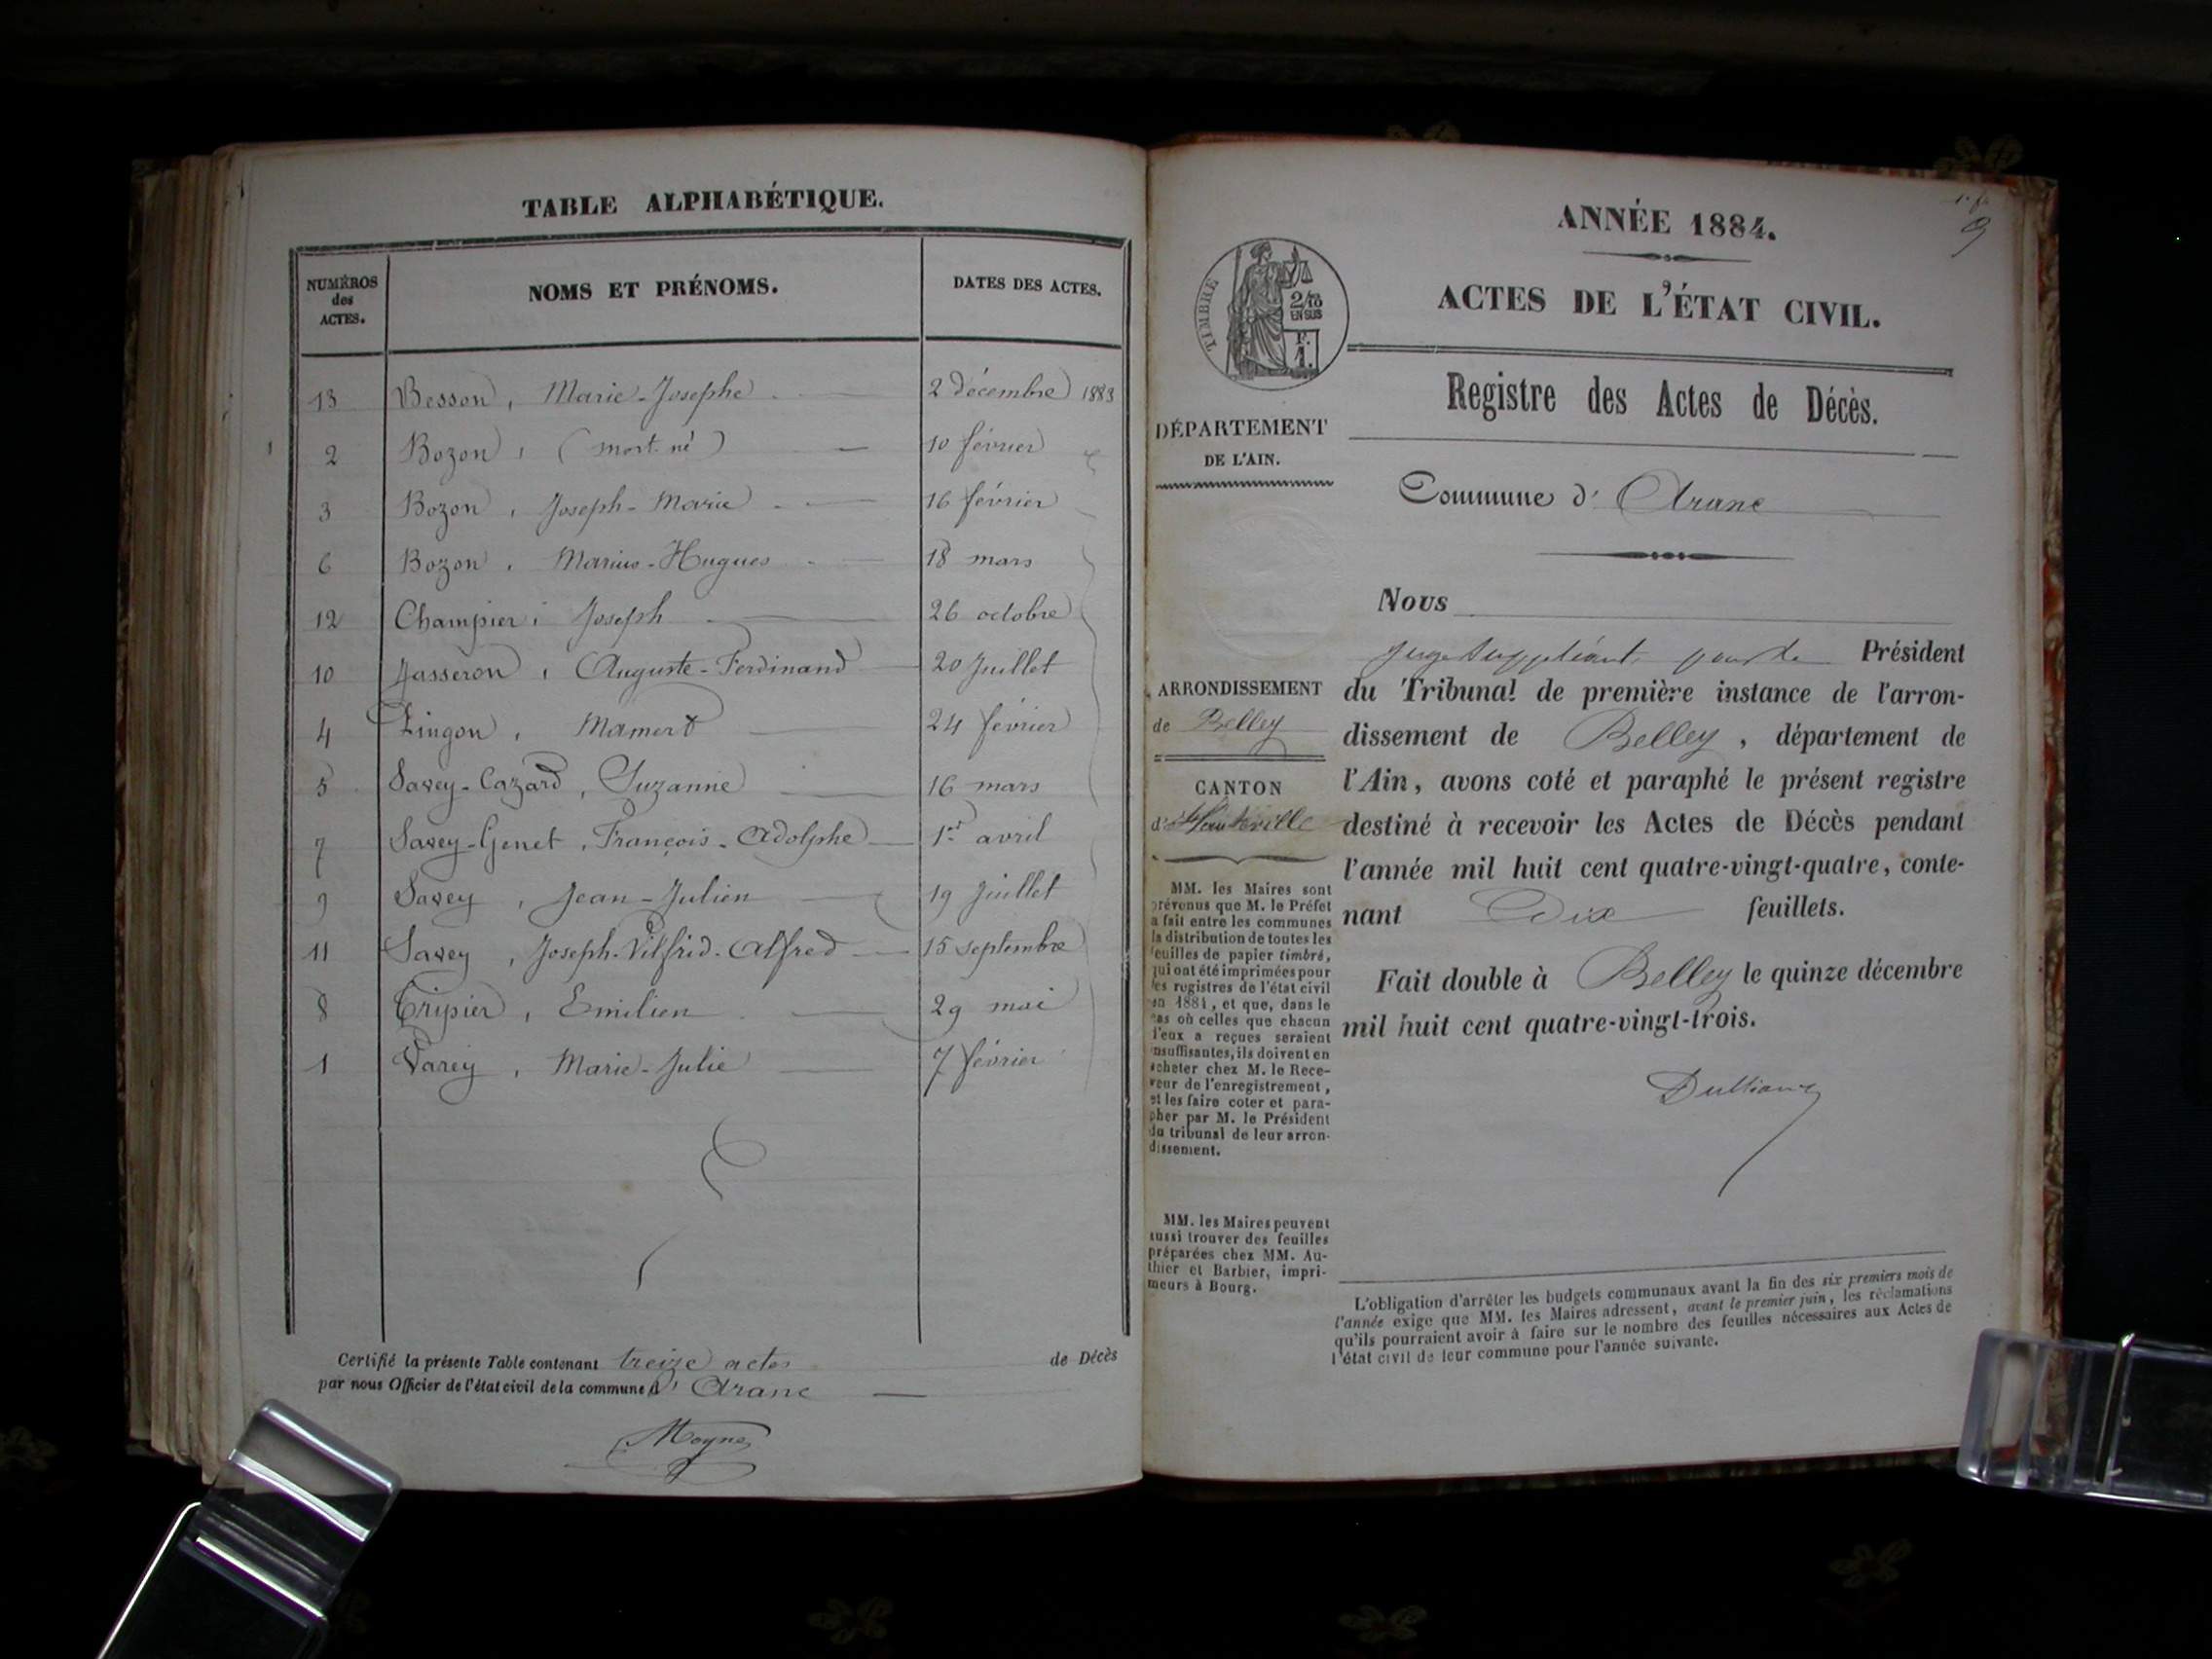 TABLE ALPHABÉTIQUE.
NUMÉROS des ACTES.
NOMS ET PRÉNOMS.
DATES DES ACTES.
13 Besson, Marie-Josephe 2 décembre 1883
2 Bozon, (mort-né) 10 février
3 Bozon, Joseph-Marie 16 février
6 Bozon, Marius-Hugues 18 mars
12 Champier, Joseph 26 octobre
10 Jasseron, Auguste-Ferdinand 20 Juillet
4 Lingon, Mamert 24 février
5 Savey-Cazard, Suzanne 16 mars
7 Savey-Genet, François-Adolphe 1er avril
9 Savey, Jean-Julien 19 Juillet
11 Savey, Joseph-Vilfrid-Alfred 15 septembre
8 Tripier, Emilien 29 mai
1 Varey, Marie-Julie 7 février
Certifié la présente Table contenant treize actes de Décès
par nous Officier de l'état civil de la commune d' Aranc
Moyne
ANNÉE 1884.
ACTES DE L'ÉTAT CIVIL.
TIMBRE
2/10
EN SUS
F.
1.
Registre des Actes de Décès.
DÉPARTEMENT
DE L'AIN.
Commune d' Aranc
Nous
juge suppléant, pour le Président
du Tribunal de première instance de l'arron-
dissement de Belley, département de
l'Ain, avons coté et paraphé le présent registre
destiné à recevoir les Actes de Décès pendant
l'année mil huit cent quatre-vingt-quatre, conte-
nant Dix feuillets.
Fait double à Belley le quinze décembre
mil huit cent quatre-vingt-trois.
ARRONDISSEMENT
de Belley
CANTON
d'Hauteville
MM. les Maires sont
prévenus que M. le Préfet
a fait entre les communes
la distribution de toutes les
feuilles de papier timbré,
qui ont été imprimées pour
les registres de l'état civil
en 1884, et que, dans le
cas où celles que chacun
d'eux a reçues seraient
insuffisantes, ils doivent en
acheter chez M. le Rece-
veur de l'enregistrement,
et les faire coter et para-
pher par M. le Président
du tribunal de leur arron-
dissement.
MM. les Maires peuvent
aussi trouver des feuilles
préparées chez MM. Au-
thier et Barbier, impri-
meurs à Bourg.
L'obligation d'arrêter les budgets communaux avant la fin des six premiers mois de
l'année exige que MM. les Maires adressent, avant le premier juin, les réclamations
qu'ils pourraient avoir à faire sur le nombre des feuilles nécessaires aux Actes de
l'état civil de leur commune pour l'année suivante.